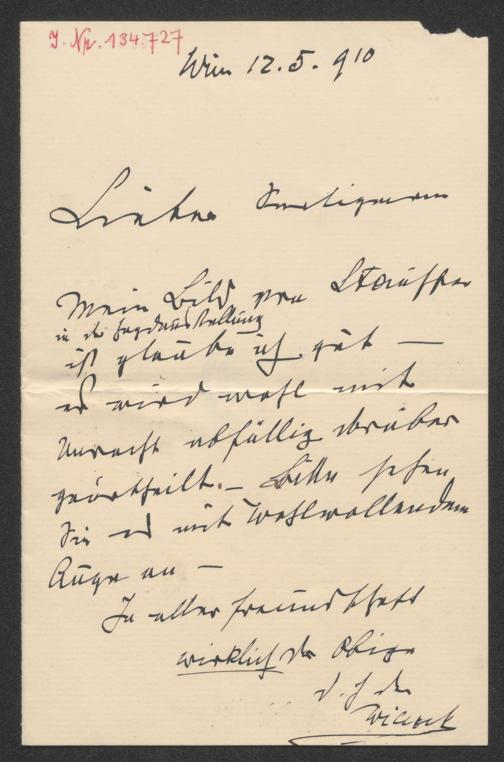 I. Nr. 134.727
Wien 12.5.910
Lieber
Mein Bild von Stauffer
in der Jagdausstellung
ist glaube ich gut —
es wird wohl mit
Unrecht abfällig darüber
geurtheilt. — Bitte sehen
Sie es mit wohlwollendem
Auge an —
In aller Freundschaft
wirklich der Obige
d. h. der
Wilczek